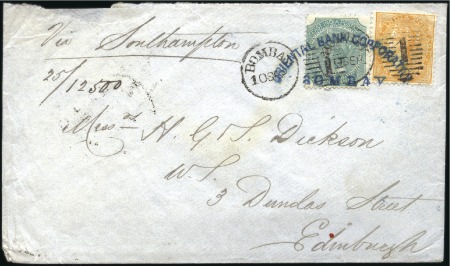 Via Southampton
25/12500
BOMBAY
ORIENTAL BANK CORPORATION
BOMBAY
1
Messrs H. G & S. Dickson
W. S.
3 Dundas Street
Edinburgh